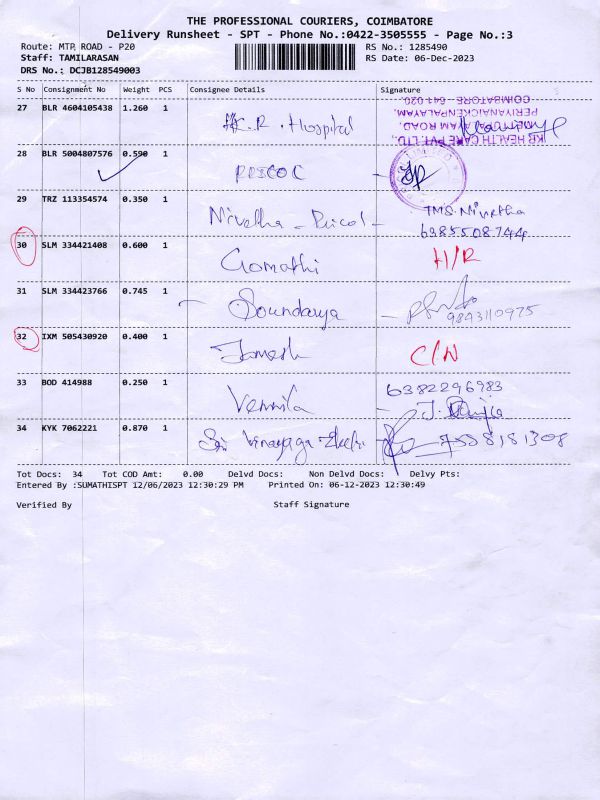 THE PROFESSIONAL COURIERS, COIMBATORE
Delivery Runsheet - SPT - Phone No.:0422-3505555 - Page No.:3
Route: MTP ROAD - P20
RS No.: 1285490
Staff: TAMILARASAN
RS Date: 06-Dec-2023
DRS No.: DCJB128549003
S No Consignment No Weight PCS Consignee Details Signature
27 BLR 4604105438 1.260 1 Hospital
KB HEALTH CARE PVT. LTD.
PERIYANAICKENPALAYAM,
COIMBATORE - 641 020.
28 BLR 5004807576 0.590 1 PRICOL
29 TRZ 113354574 0.350 1 Nivetha - Pricol - TMS. Nivetha
6385508744
30 SLM 334421408 0.600 1 Gomathi H/R
31 SLM 334423766 0.745 1 Soundarya
9843110975
32 IXM 505430920 0.400 1 C/N
33 BOD 414988 0.250 1 Vennila 6382296983
34 KYK 7062221 0.870 1 Sri Vinayaga 7538181308
Tot Docs: 34 Tot COD Amt: 0.00 Delvd Docs: Non Delvd Docs: Delvy Pts:
Entered By :SUMATHISPT 12/06/2023 12:30:29 PM Printed On: 06-12-2023 12:30:49
Verified By Staff Signature